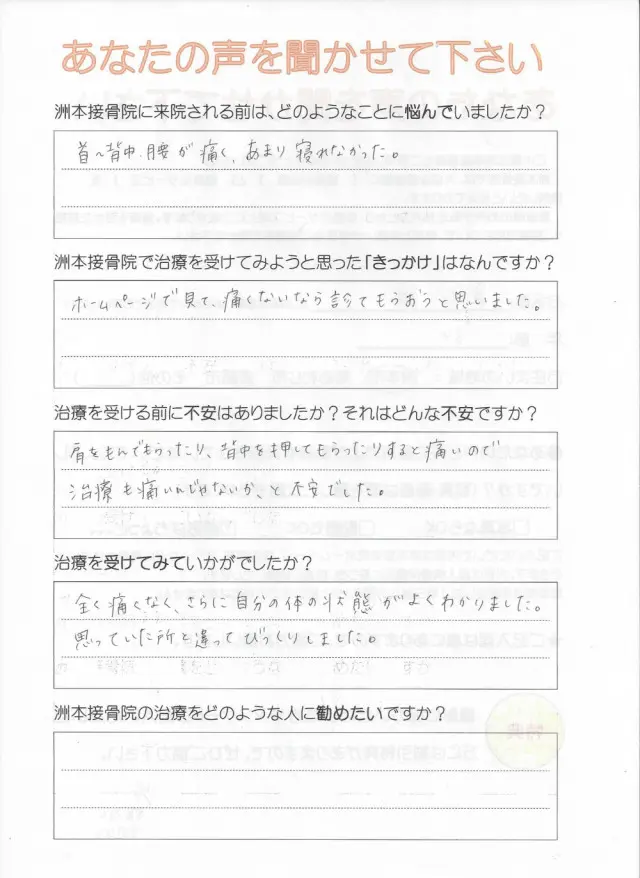 あなたの声を聞かせて下さい
洲本接骨院に来院される前は、どのようなことに悩んでいましたか？
首〜背中、腰が痛く、あまり寝れなかった。
洲本接骨院で治療を受けてみようと思った「きっかけ」はなんですか？
ホームページで見て、痛くないなら診てもらおうと思いました。
治療を受ける前に不安はありましたか？それはどんな不安ですか？
肩をもんでもらったり、背中を押してもらったりすると痛いので
治療も痛いんじゃないか、と不安でした。
治療を受けてみていかがでしたか？
全く痛くなく、さらに自分の体の状態がよくわかりました。
思っていた所と違ってびっくりしました。
洲本接骨院の治療をどのような人に勧めたいですか？
特典